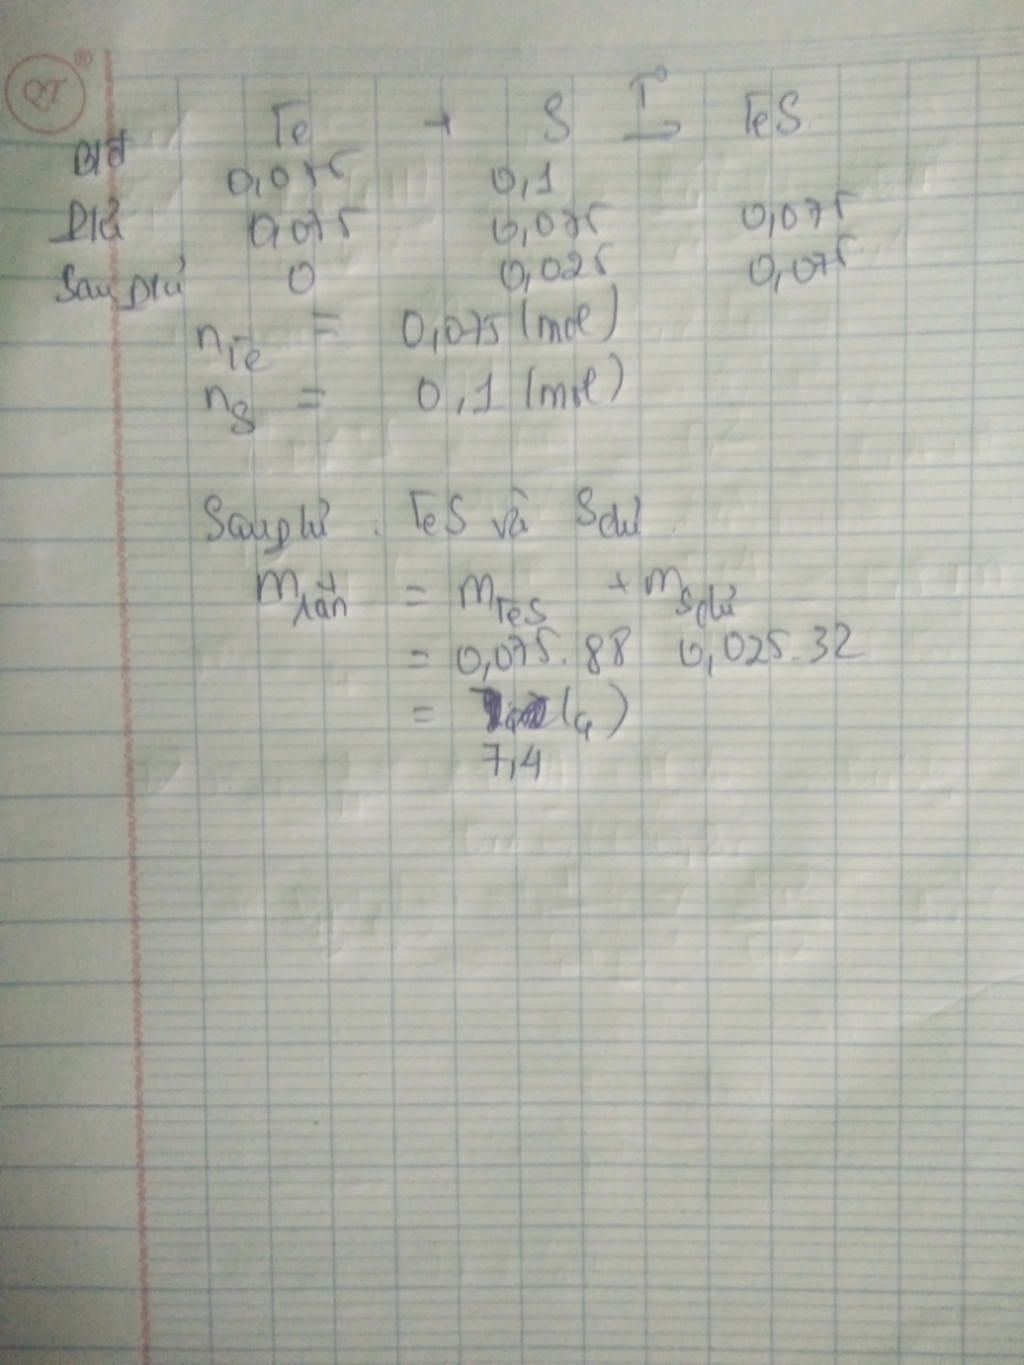 QT
Fe + S T° → FeS
Bđ 0,075 0,1
Pứ 0,075 0,075 0,075
Sau pứ 0 0,025 0,075
nFe = 0,075 (mol)
nS = 0,1 (mol)
Sau pứ : FeS và S dư
m rắn = mFeS + mS dư
= 0,075.88 0,025.32
= (g)
7,4